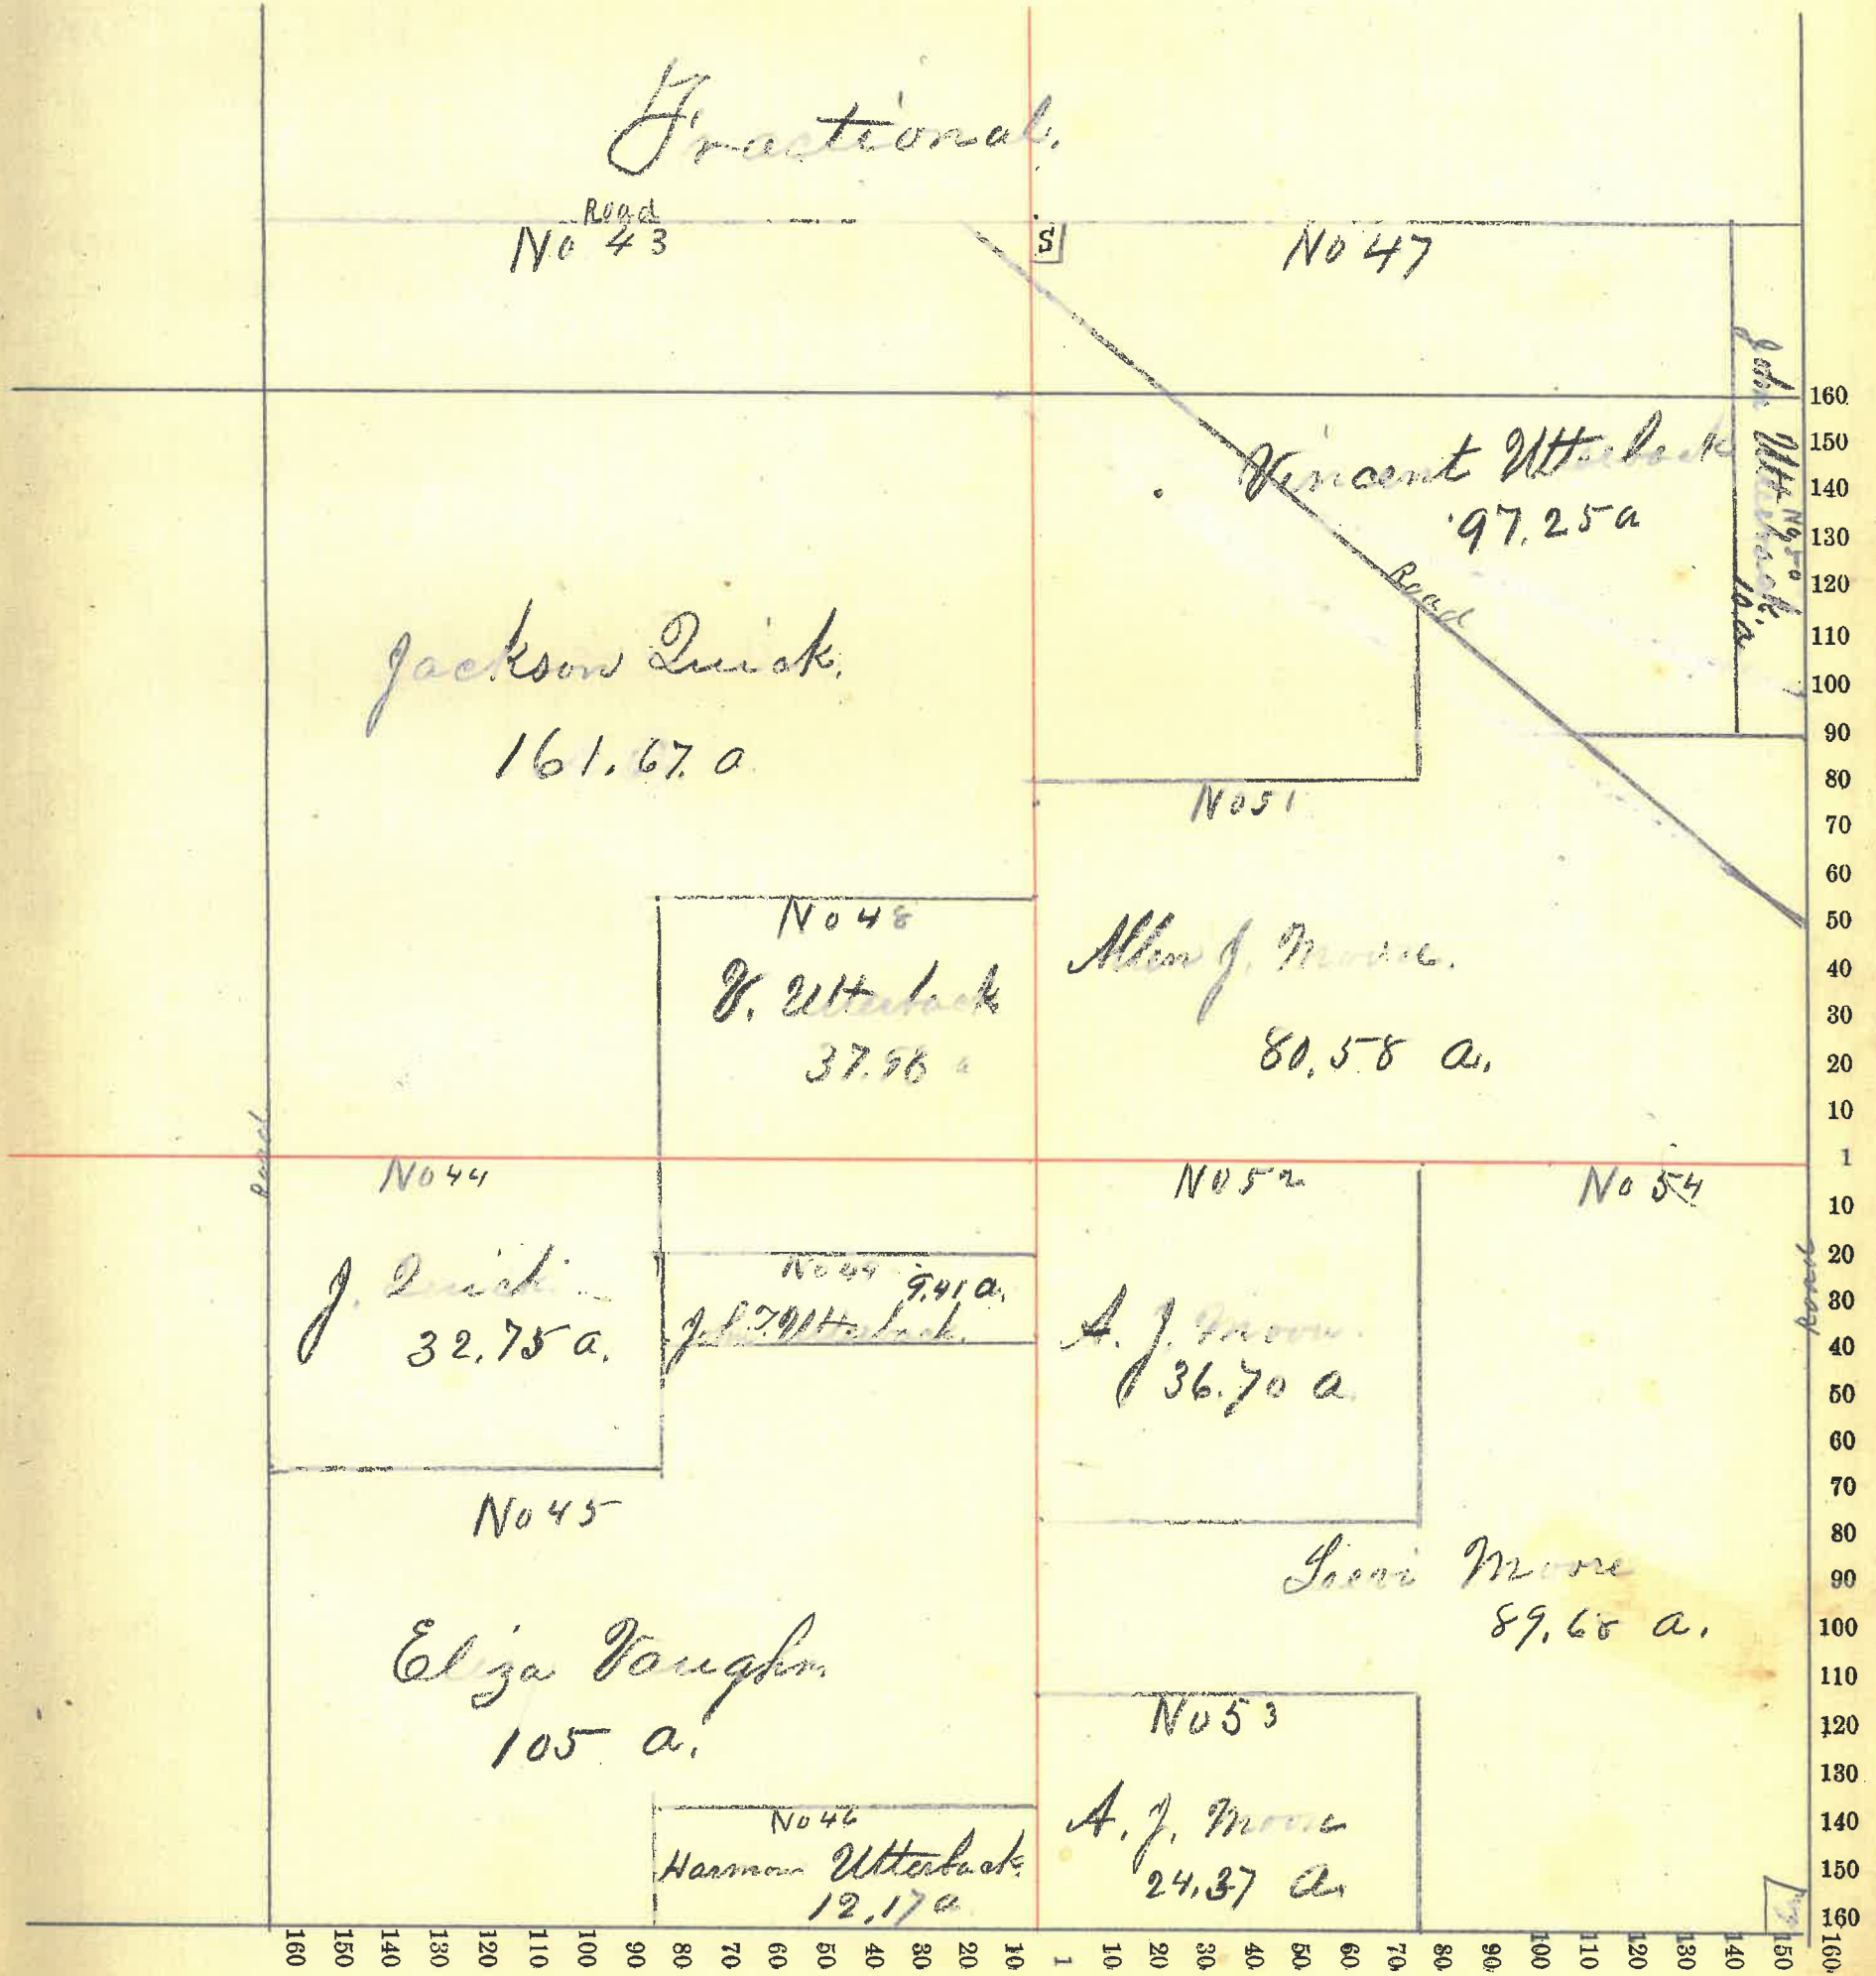 Fractional.
Road
No 43
S
No 47
John Utterback
No 50
10 a
Vincent Utterback
97.25 a
Road
Jackson Quick.
161.67. a
No 51
No 48
V. Utterback
Allen J. Moore.
80.58 a.
Road
No 44
J. Quick
32.75 a.
No 49
9.41 a.
Utterback.
No 52
A. J. Moore.
36.70 a
No 54
Road
No 45
Eliza Vaughn
105 a.
Levi Moore
89.68 a.
No 46
Harmon Utterback
12.17 a
No 53
A. J. Moore
24.37 a.
160
150
140
130
120
110
100
90
80
70
60
50
40
30
20
10
1
10
20
30
40
50
60
70
80
90
100
110
120
130
140
150
160
160 150 140 130 120 110 100 90 80 70 60 50 40 30 20 10 1 10 20 30 40 50 60 70 80 90 100 110 120 130 140 150 160